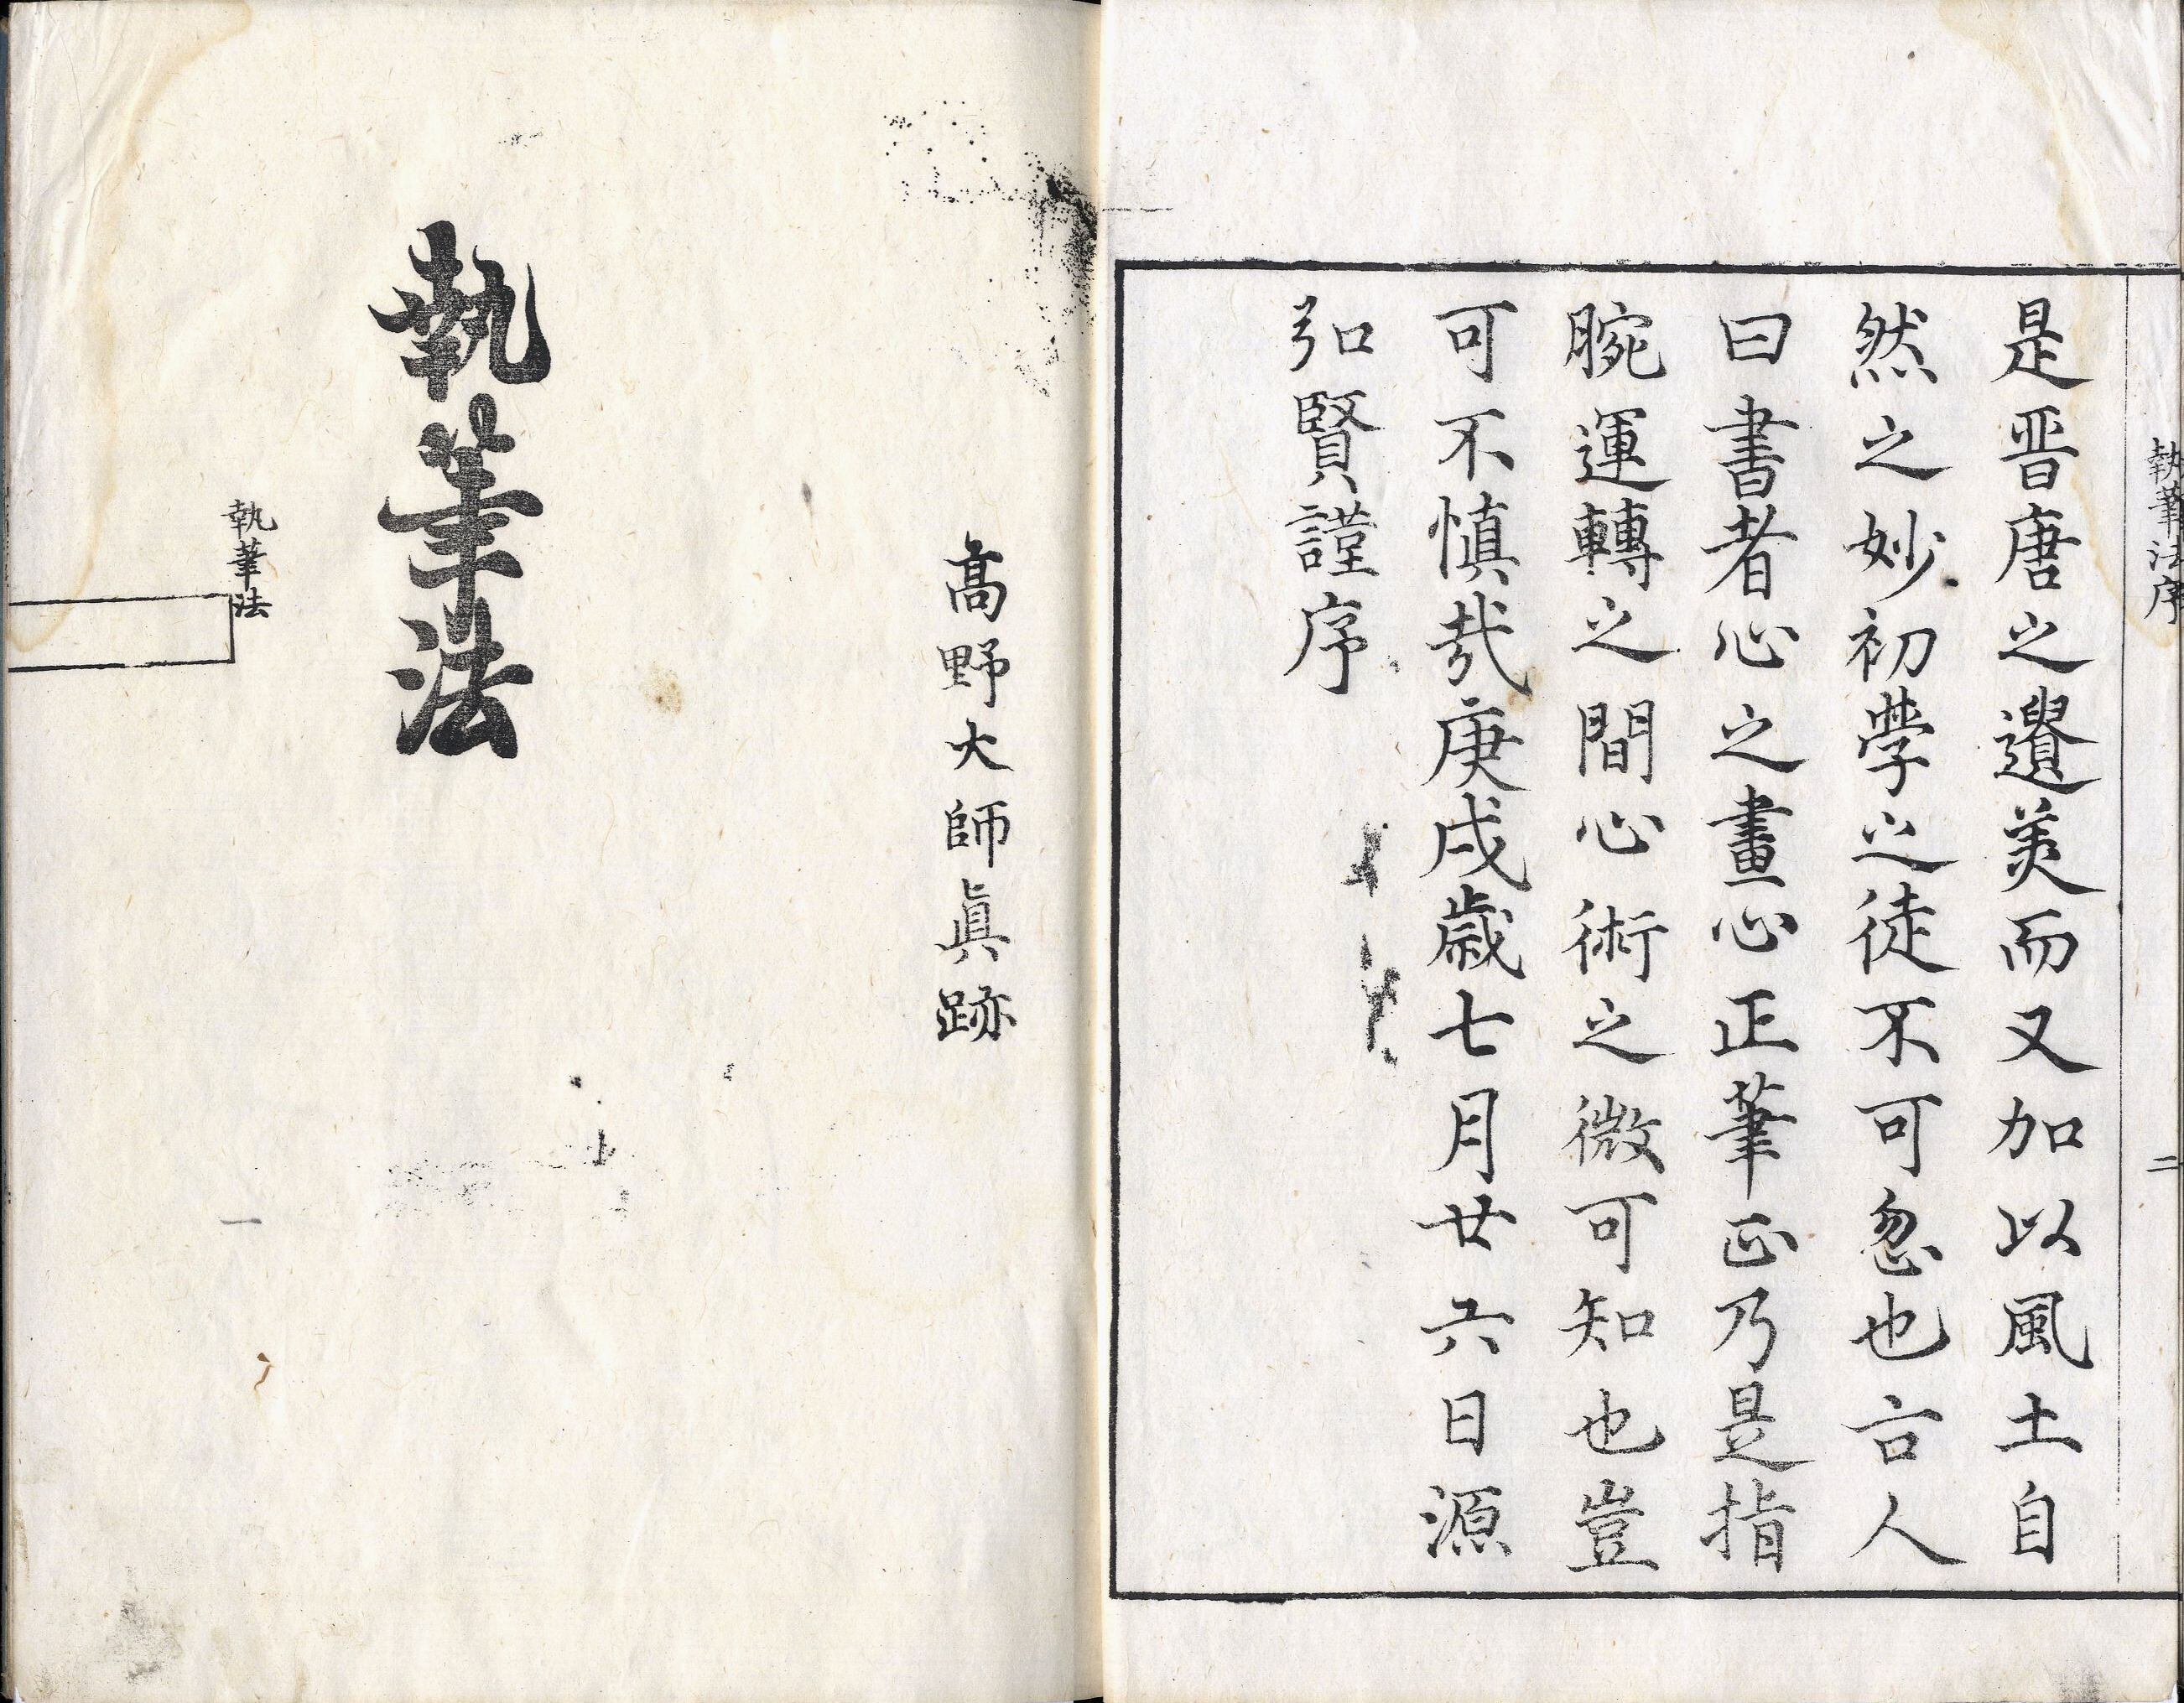 執筆法序
二
是晋唐之遺美而又加以風土自
然之妙初學之徒不可忽也古人
曰書者心之畫心正筆正乃是指
腕運轉之間心術之微可知也豈
可不慎哉庚戌歳七月廿六日源
弘賢謹序
高野大師眞跡
執筆法
執筆法
一